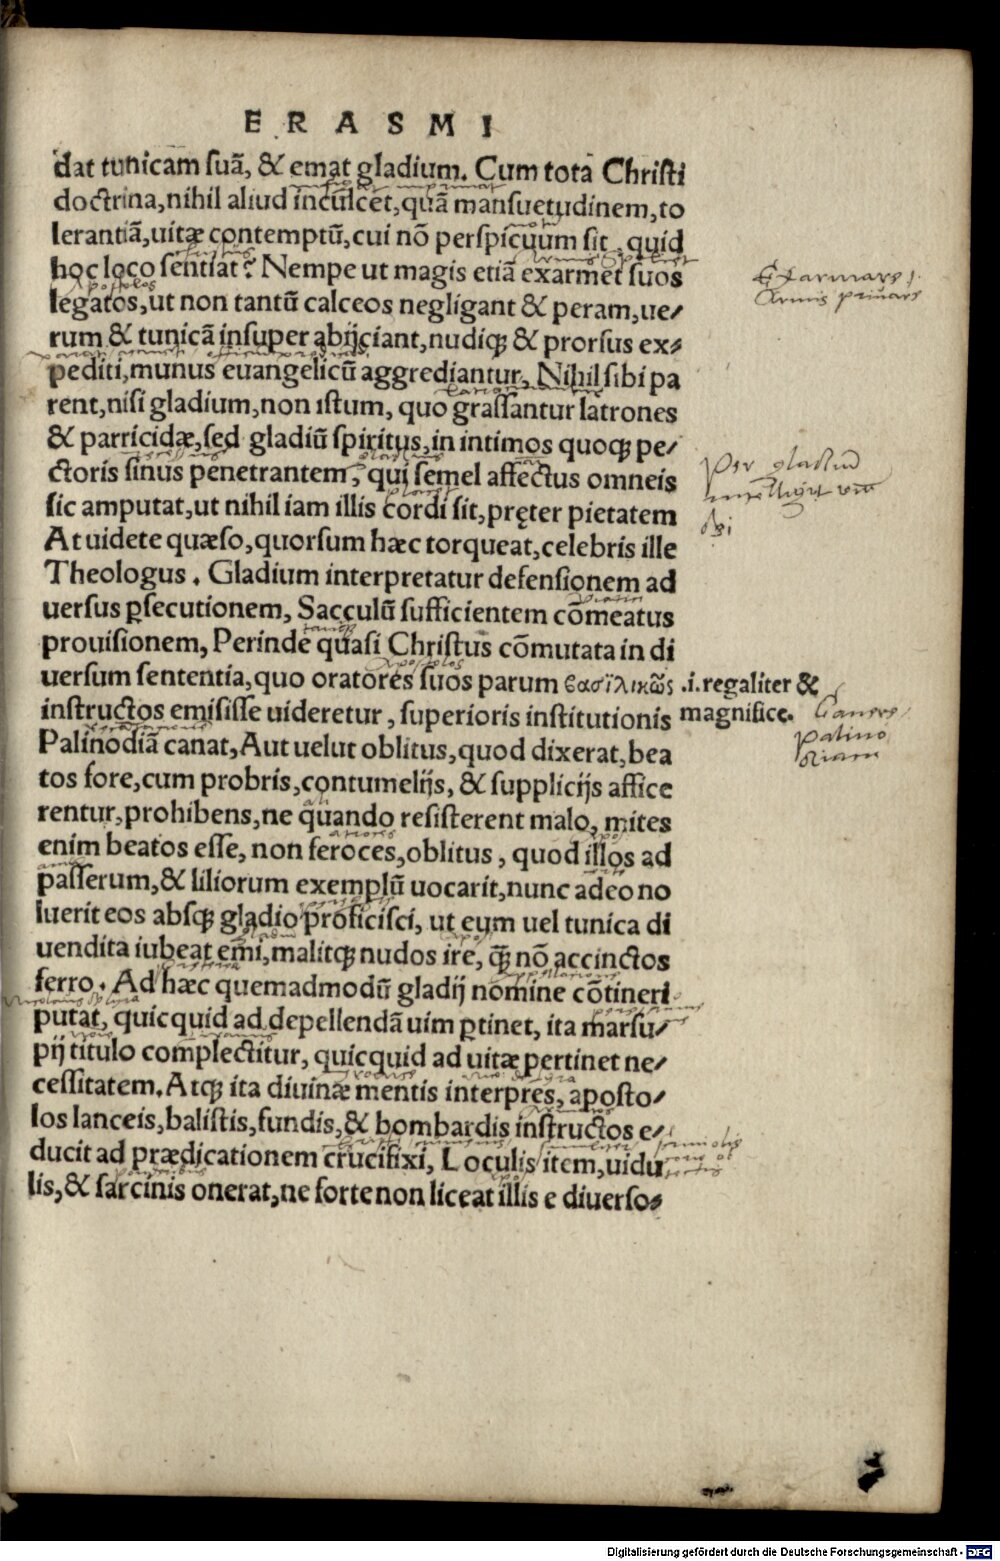 ERASMI
dat tunicam suã, & emat gladium. Cum tota Christi
doctrina, nihil aliud inculcet, quã mansuetudinem, to
lerantiã, uitæ contemptũ, cui nõ perspicuum sit, quid
hoc loco sentiat? Nempe ut magis etiã exarmet suos
Exarmare .i.
Armis privare
legatos, ut non tantũ calceos negligant & peram, ue/
rum & tunicã insuper abijciant, nudiqꝫ & prorsus ex/
pediti, munus euangelicũ aggrediantur, Nihil sibi pa
rent, nisi gladium, non istum, quo grassantur latrones
& parricidæ, sed gladiũ spiritus, in intimos quoqꝫ pe/
ctoris sinus penetrantem, qui semel affectus omneis
Per gladiũ
dei
sic amputat, ut nihil iam illis cordi sit, pręter pietatem
At uidete quæso, quorsum hæc torqueat, celebris ille
Theologus. Gladium interpretatur defensionem ad
uersus ꝑsecutionem, Sacculũ sufficientem cõmeatus
prouisionem, Perinde quasi Christus cõmutata in di
uersum sententia, quo oratores suos parum βασϊλικῶς .i. regaliter &
instructos emisisse uideretur, superioris institutionis magnifice.
Canere
palino
diam
Palinodiã canat, Aut uelut oblitus, quod dixerat, bea
tos fore, cum probris, contumelijs, & supplicijs affice
rentur, prohibens, ne quando resisterent malo, mites
enim beatos esse, non feroces, oblitus, quod illos ad
passerum, & liliorum exemplũ uocarit, nunc adeo no
luerit eos absqꝫ gladio proficisci, ut eum uel tunica di
uendita iubeat emi, malitqꝫ nudos ire, q̃ꝫ nõ accinctos
ferro. Ad hæc quemadmodũ gladij nomine cõtineri
putat, quicquid ad depellendã uim ꝑtinet, ita marsu/
pij titulo complectitur, quicquid ad uitæ pertinet ne/
cessitatem. Atqꝫ ita diuinæ mentis interpres, aposto/
los lanceis, balistis, fundis, & bombardis instructos e/
ducit ad prædicationem crucifixi, Loculis item, uidu
lis, & sarcinis onerat, ne forte non liceat illis e diuerso/
Digitalisierung gefördert durch die Deutsche Forschungsgemeinschaft - DFG